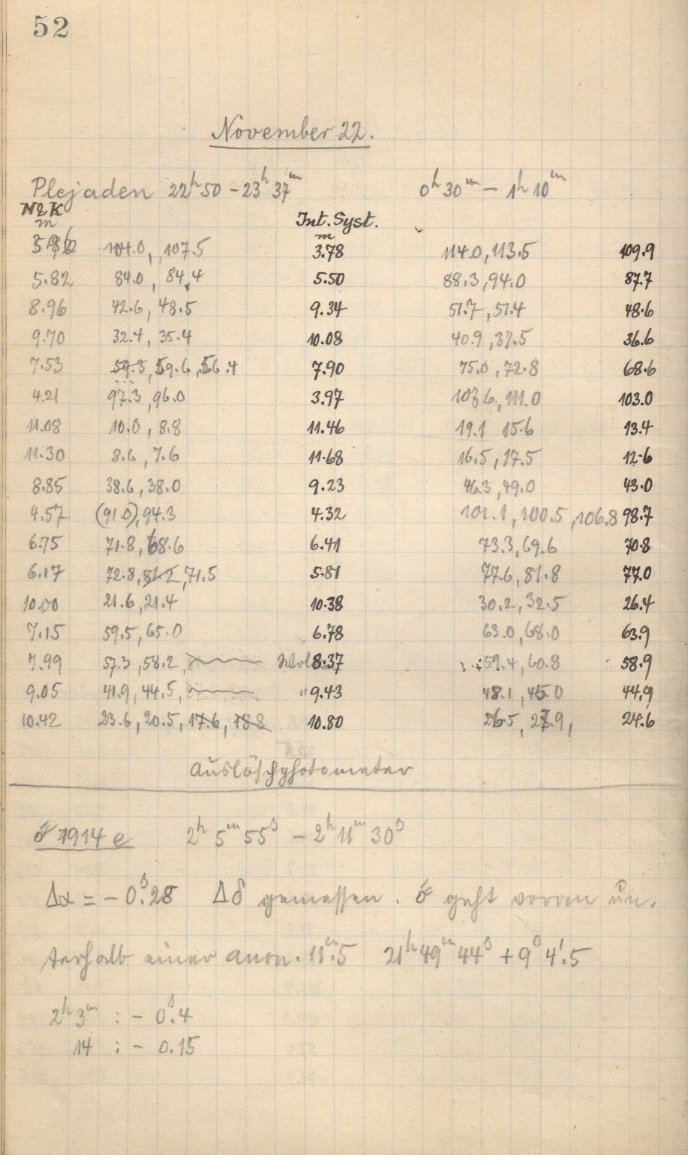 52
November 22.
Plejaden 22ʰ50 – 23ʰ37ᵐ 0ʰ30ᵐ – 1ʰ10ᵐ
N&K Int. Syst.
m m
104.0, 107.5 3.78 114.0, 113.5 109.9
5.82 84.0, 84.4 5.50 88.3, 94.0 87.7
8.96 42.6, 48.5 9.34 51.7, 51.4 48.6
9.70 32.4, 35.4 10.08 40.9, 37.5 36.6
7.53 59.3, 59.6, 56.4 7.90 75.0, 72.8 68.6
4.21 97.3, 96.0 3.97 107.6, 111.0 103.0
11.08 10.0, 8.8 11.46 19.1 15.6 13.4
11.30 8.6, 7.6 11.68 16.5, 17.5 12.6
8.85 38.6, 38.0 9.23 46.3, 49.0 43.0
4.57 (91.0), 94.3 4.32 101.1, 100.5, 106.8 98.7
6.75 71.8, 68.6 6.41 73.3, 69.6 70.8
6.17 72.8, 81.2, 71.5 5.81 77.6, 81.8 77.0
10.00 21.6, 21.4 10.38 30.2, 32.5 26.4
7.15 59.5, 65.0 6.78 63.0, 68.0 63.9
7.99 57.3, 58.2, 8.37 59.4, 60.8 58.9
9.05 41.9, 44.5, " 9.43 48.1, 45.0 44.9
10.42 23.6, 20.5, 17.6, 18.8 10.80 26.5, 27.9, 24.6
Auslöschphotometer
☄ 1914 e 2ʰ 5ᵐ 55ˢ – 2ʰ 11ᵐ 30ˢ
Δα = – 0ˢ.28 Δδ gemessen. ☄ geht voran un-
terhalb einer anon. 11ᵐ.5 21ʰ 49ᵐ 44ˢ + 9° 4'.5
2ʰ 3ᵐ : – 0ˢ.4
14 : – 0.15